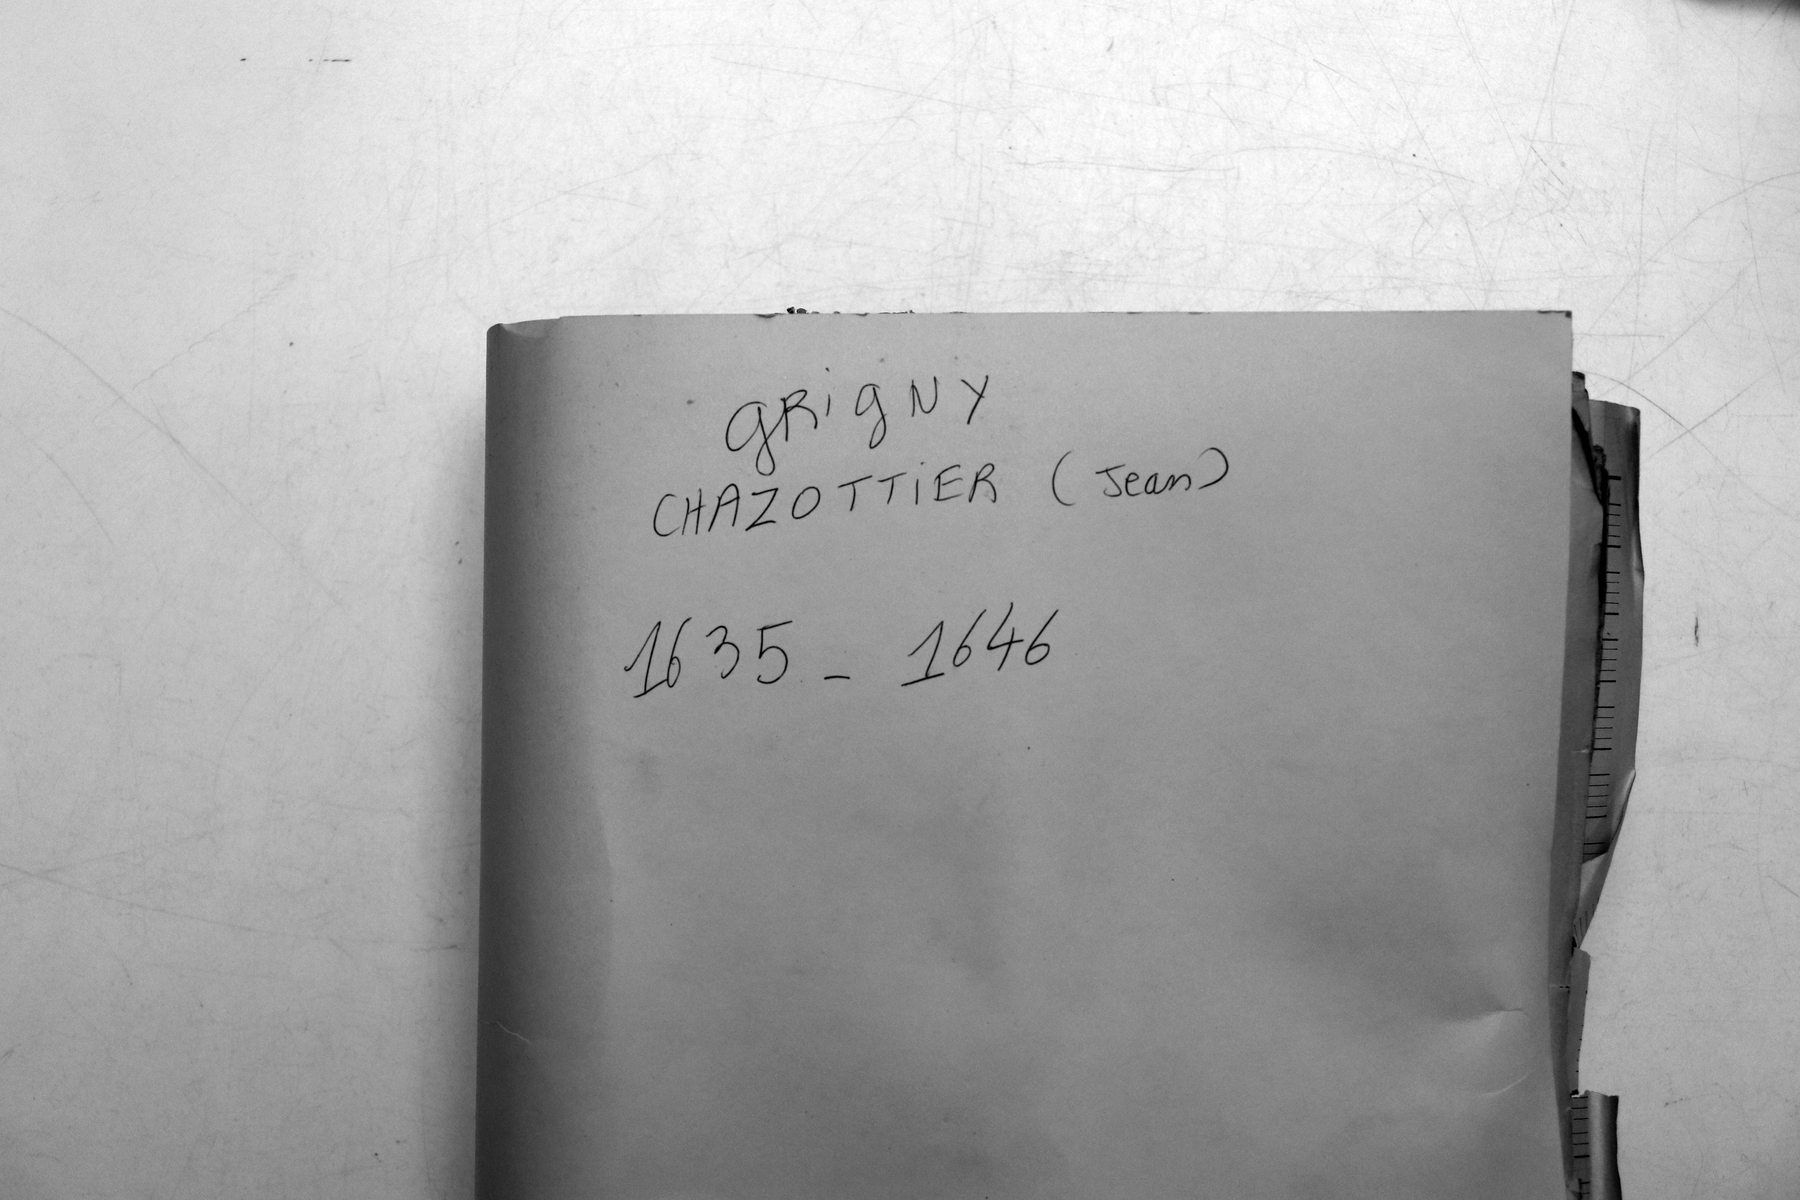 GRIGNY
CHAZOTTIER (Jean)
1635 - 1646